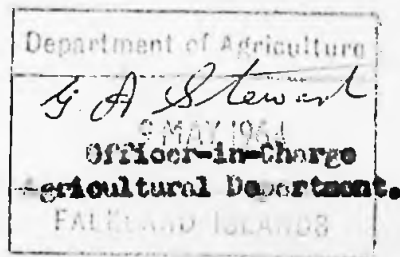 Department of Agriculture
G. A Stewart
9 MAY 1964
Officer-in-Charge
Agricultural Department.
FALKLAND ISLANDS